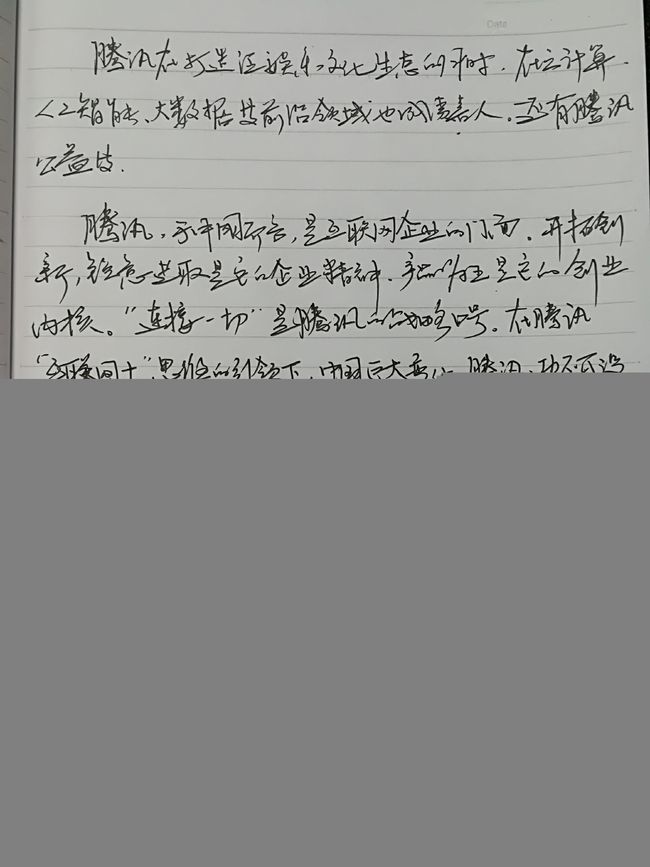 Date
腾讯在打造泛娱乐文化生态的同时，在云计算、
人工智能、大数据等前沿领域也成绩喜人，还有腾讯
公益等。
腾讯，于中国而言，是互联网企业的门面。开拓创
新，锐意进取是它的企业精神，产品为王是它的创业
内核。“连接一切”是腾讯的战略口号。在腾讯
“互联网+”思维的引领下，中国巨大变化，腾讯，功不可没